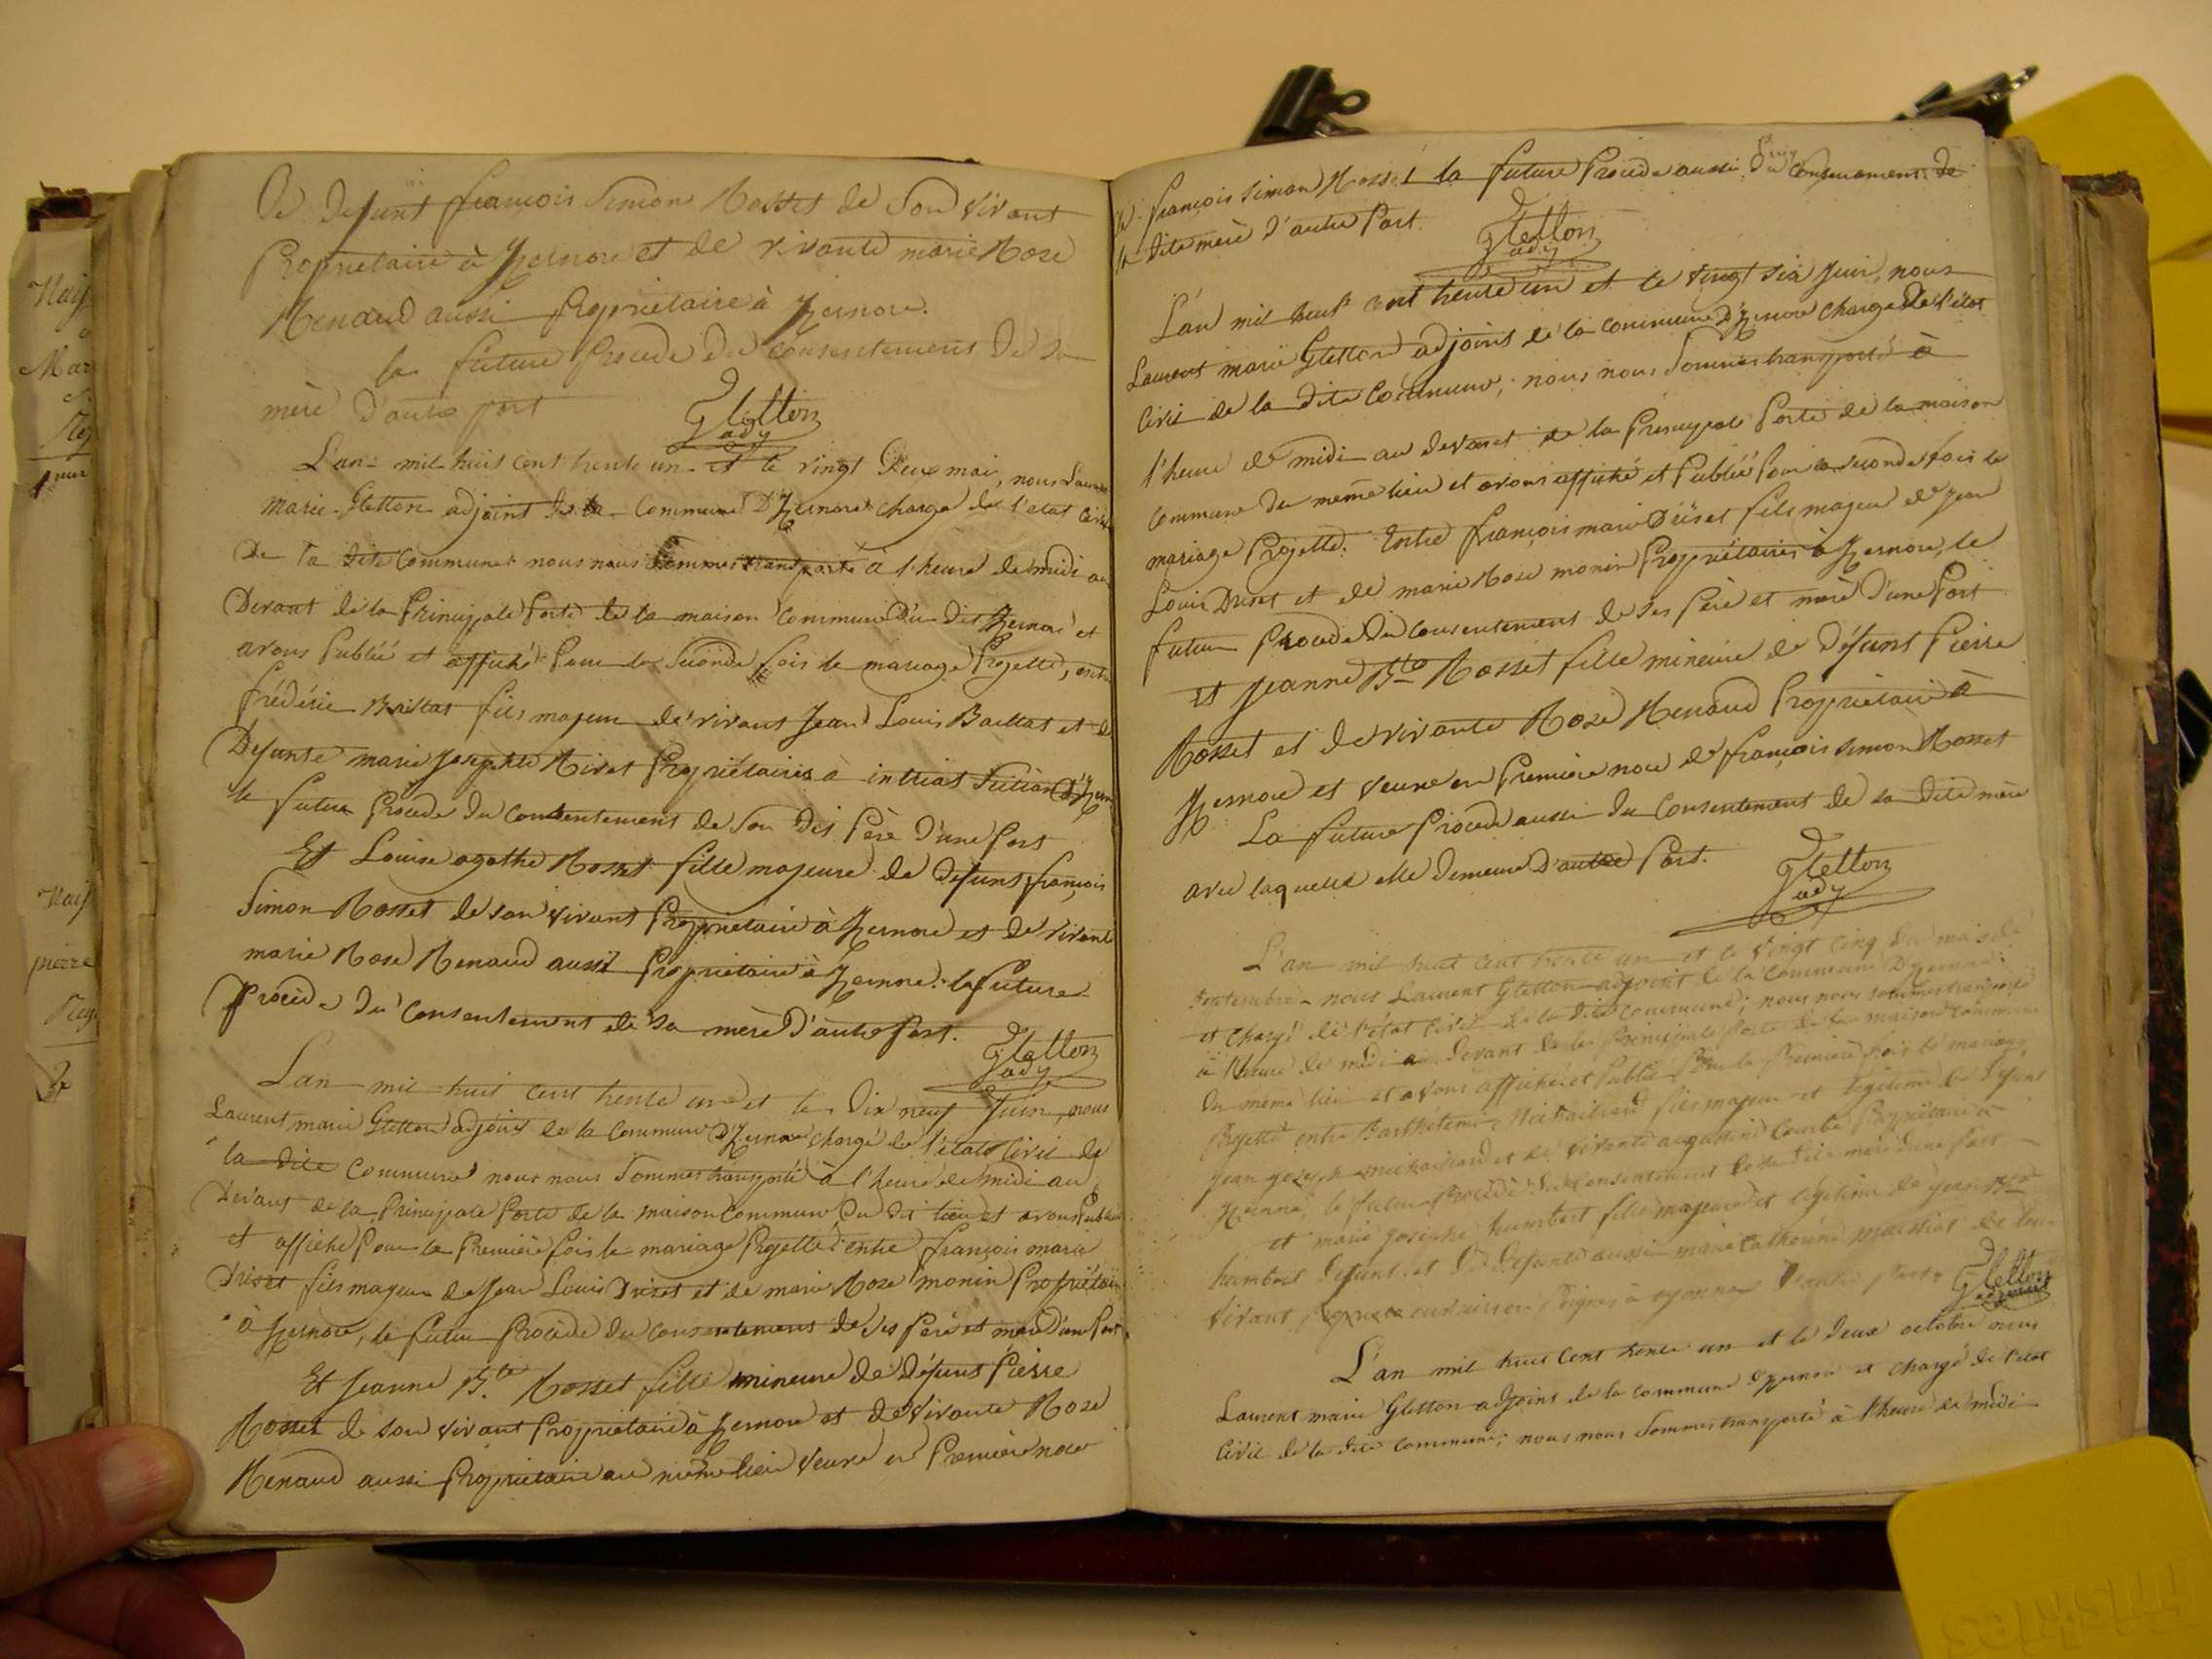 De defunt françois Simon Rosset de Son vivant
Proprietaire à Izernore et de vivante marie Rose
Renaud aussi Propriétaire à Izernore.
la future Procede du consentement de Sa
mère D'autre part
Gletton
adj
L'an mil huit cent trente un et le vingt Deux mai, nous Laurent
marie Gletton adjoint de la Commune D'Izernore chargé de l'etat Civil
De la dite Commune nous nous Sommes transporté à l'heure de midi au
Devant de la Principale Porte de la maison Commune Du Dit Izernore et
avons Publié et affiché Pour la Seconde fois le mariage Projetté, entre
frédéric Baillat fils majeur de vivant Jean Louis Baillat et de
Defunte marie Josephte Rivet Propriétaires à intriat Section D'Izern
le futur Procede du Consentement de Son Dit Père D'une Part
Et Louise agathe Rosset fille majeure de Defunt françois
Simon Rosset de son vivant Propriétaire à Izernore et de vivante
marie Rose Renaud aussi Propriétaire à Izernore. la future
Procède du Consentement de Sa mère D'autre Part.
Gletton
adj
L'an mil huit cent trente un et le Dix neuf Juin, nous
Laurent marie Gletton adjoint de la Commune D'Izernore chargé de l'état Civil de
la dite Commune nous nous Sommes transporté à l'heure de midi au
Devant de la Principale Porte de la maison Commune Du Dit lieu et avons Publié
et affiché Pour la Première fois le mariage Projetté entre françois marie
Druet fils majeur de Jean Louis Druet et de marie Rose monin Propriétaires
à Izernore, le futur Procède du consentement de Ses Père et mère D'une Part
Et Jeanne B.te Rosset fille mineure de Défunt Pierre
Rosset de son vivant Propriétaire à Izernore et de vivante Rose
Renaud aussi Propriétaire au même lieu veuve en Première noce
de françois Simon Rosset la future Procède aussi Du Consentement de
sa Dite mère D'autre Part.
Gletton
adj
L'an mil huit cent trente un et le vingt Six Juin, nous
Laurent marie Gletton adjoint de la Commune D'Izernore chargé de l'état
Civil de la dite Commune; nous nous Sommes transporté à
l'heure de midi au devant de la Principale Porte de la maison
Commune du même lieu et avons affiché et Publié Pour la seconde fois le
mariage Projetté. Entre françois marie Druet fils majeur de Jean
Louis Druet et de marie Rose monin Propriétaires à Izernore, le
futur Procède Du consentement de Ses Père et mère D'une Part
et Jeanne B.te Rosset fille mineure de Défunt Pierre
Rosset et de vivante Rose Renaud Propriétaire à
Izernore et veuve en Première noce de françois Simon Rosset
La future Procede aussi du Consentement de sa dite mère
avec laquelle elle Demeure D'autre Part.
Gletton
adj
L'an mil huit cent trente un et le vingt cinq du mois de
Septembre nous Laurent Gletton adjoint de la Commune D'Izernore
et chargé de l'état Civil de la dite Commune; nous nous sommes transporté
à l'heure de midi au devant de la Principale Porte de la maison Commune
du même lieu et avons affiché et Publié Pour la Première fois le mariage
Projetté entre Barthélemie Michaillard fils majeur et légitime de défunt
Jean Joseph michaillard et de vivante Propriétaire à
Izernore, le futur Procède du Consentement de Sa dite mère D'une Part
et marie Josephe humbert fille majeure et légitime de Jean B.te
humbert Défunt et de Defunte aussi marie Cathérine de leur
vivant à oyonnax D'autre Part.
Gletton
L'an mil huit Cent trente un et le deux octobre nous
Laurent marie Gletton adjoint de la commune D'Izernore et chargé de l'état
Civil de la dite Commune; nous nous Sommes transporté à l'heure de midi